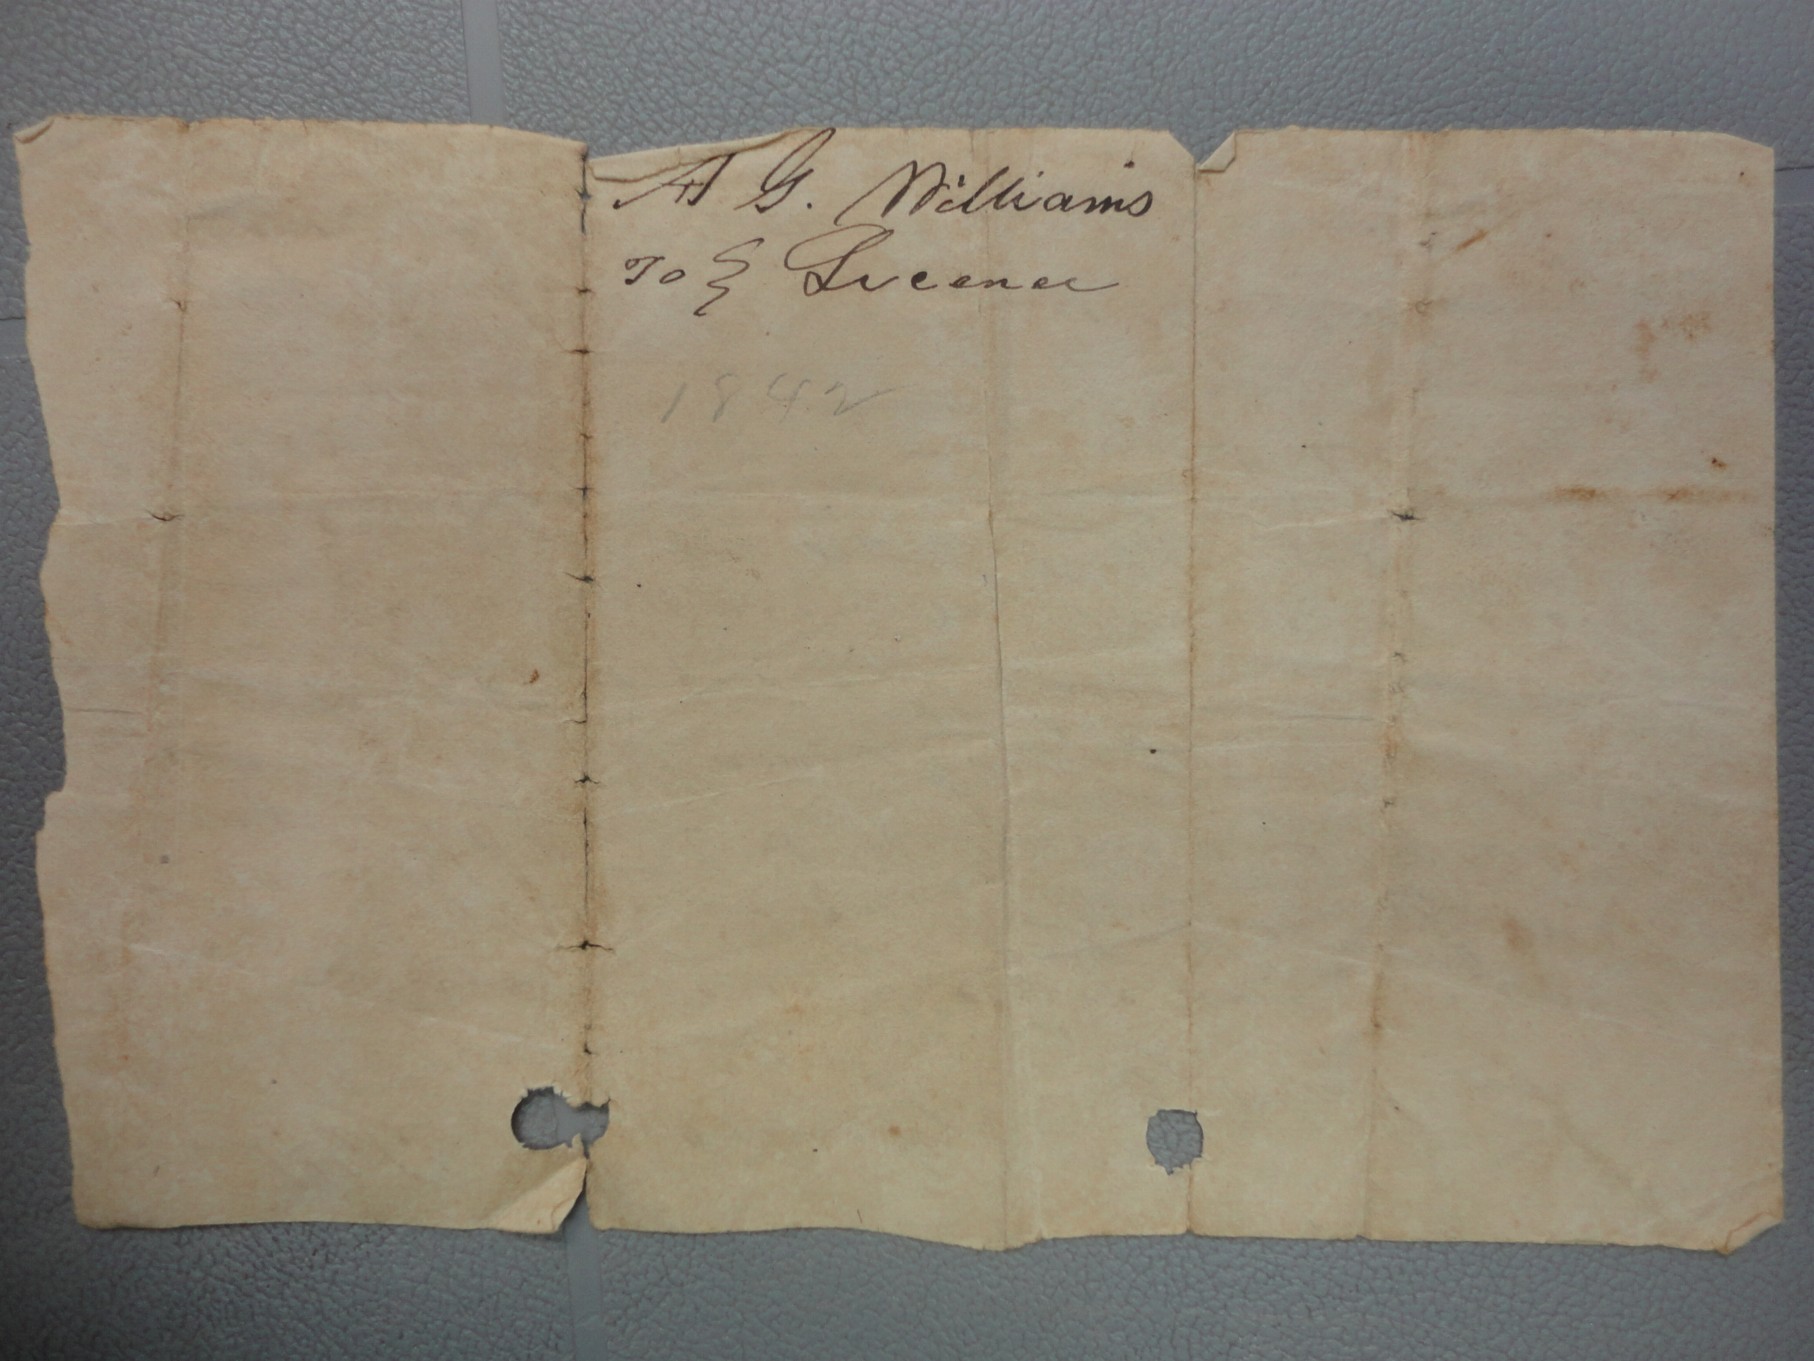 A G. Williams
To } Licence
1842